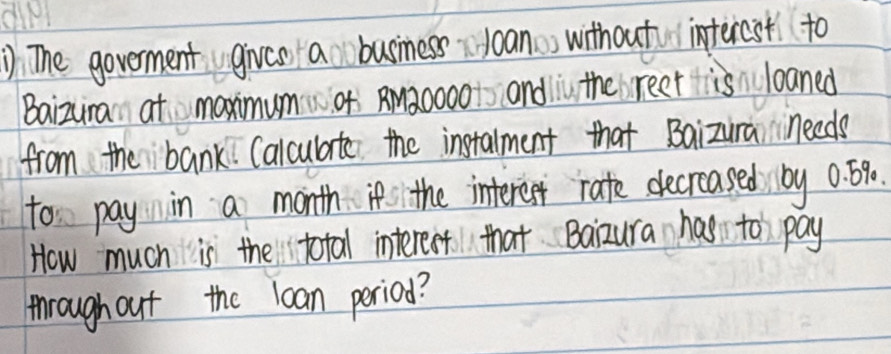 i) The goverment gives a business loan without interest to
Baizura at maximum of RM20000 and the rest is loaned
from the bank. Calculate the instalment that Baizura needs
to pay in a month if the interest rate decreased by 0.5%.
How much is the total interest that Baizura has to pay
throughout the loan period?